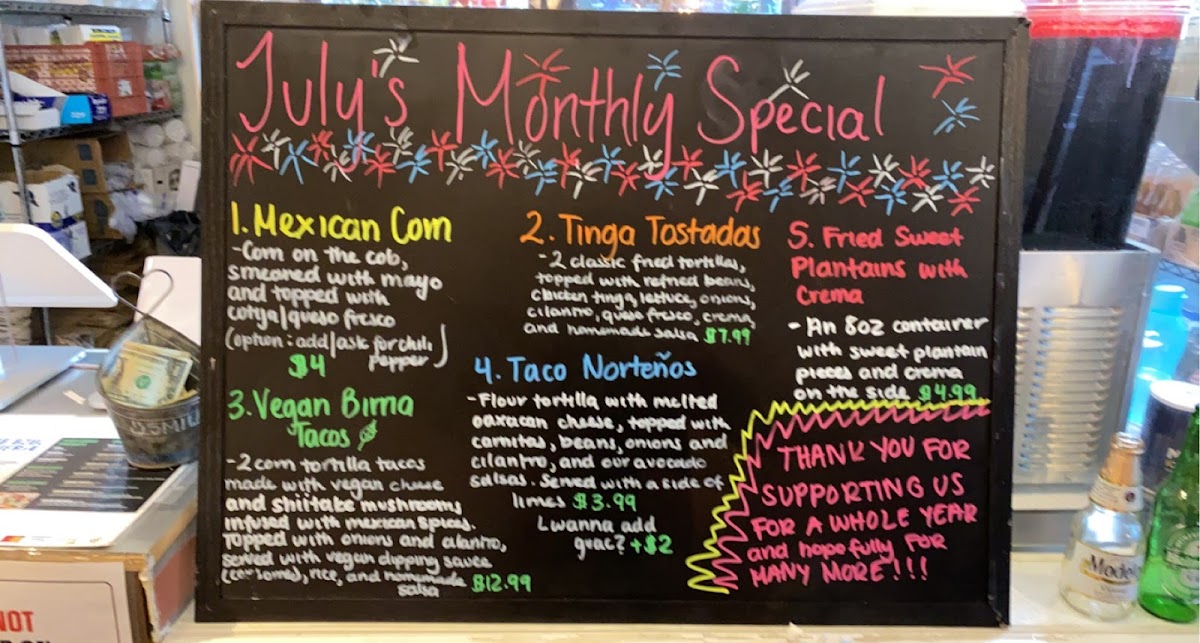 July's Monthly Special
1. Mexican Corn
-Corn on the cob,
smeared with mayo
and topped with
cotija/queso fresco
(option: add/ask for chili
pepper)
$4
2. Tinga Tostadas
-2 classic fried tortillas,
topped with refried beans,
chicken tinga, lettuce, onions,
cilantro, queso fresco, crema,
and homemade salsa $7.99
3. Vegan Birria
Tacos
-2 corn tortilla tacos
made with vegan cheese
and shiitake mushrooms
infused with mexican spices.
Topped with onions and cilantro,
served with vegan dipping sauce
(consomé), rice, and homemade
salsa $12.99
4. Taco Norteños
-Flour tortilla with melted
oaxacan cheese, topped with
carnitas, beans, onions and
cilantro, and our avocado
salsas. Served with a side of
limes $3.99
Lwanna add
guac? +$2
5. Fried Sweet
Plantains with
Crema
- An 8oz container
with sweet plantain
pieces and crema
on the side $4.99
THANK YOU FOR
SUPPORTING US
FOR A WHOLE YEAR
and hopefully FOR
MANY MORE!!!
NOT
Modelo